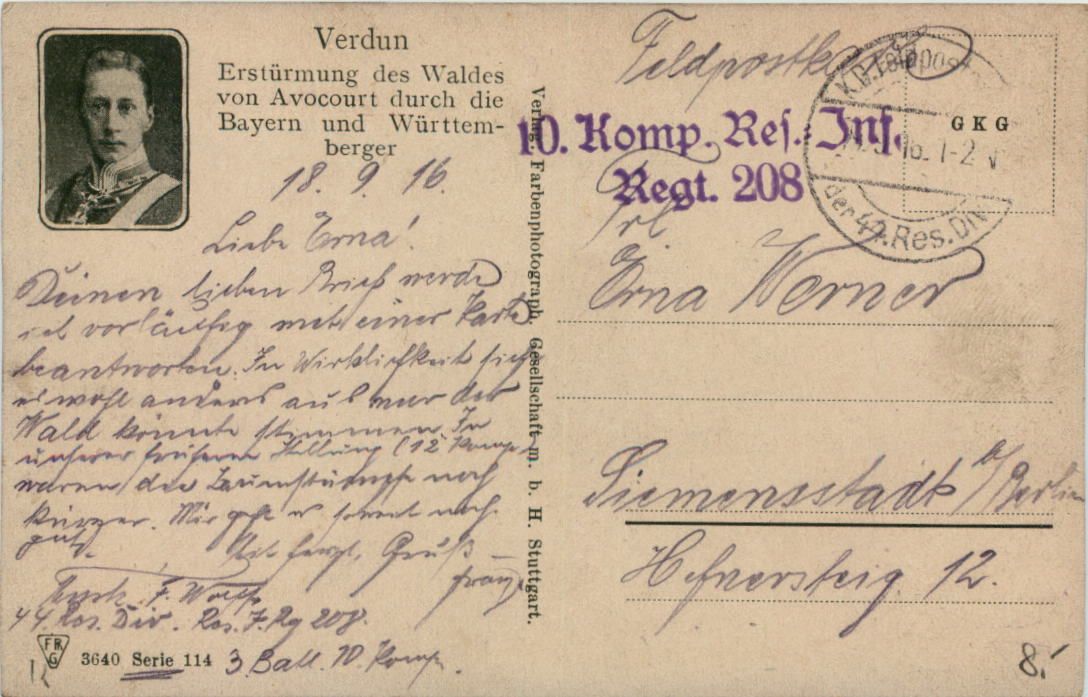 Verdun
Erstürmung des Waldes
von Avocourt durch die
Bayern und Württem-
berger
18. 9. 16.
Liebe Erna!
Deinen lieben Brief werde
ich vorläufig mit einer Karte
beantworten. In Wirklichkeit sieht
es wohl anders aus nur der
Wald könnte stimmen. In
unserer früheren Stellung (12. Komp.)
waren die Baumstümpfe noch
kürzer. Mir geht es soweit noch
gut.
Mit herzl. Gruß
Franz
F. Wolff
44. Res. Div. Res. I. Rg 208.
3. Batl. 10. Komp.
FR
G
3640 Serie 114
Verlag: Farbenphotograph. Gesellschaft m. b. H. Stuttgart.
Feldpostkarte
10. Komp. Res.-Inf.
Regt. 208
K.D. Feldpost
16. 1-2 N
der 44. Res. Div.
GKG
Frl
Erna Werner
Siemensstadt b/Berlin
Hefnersteig 12.
8.